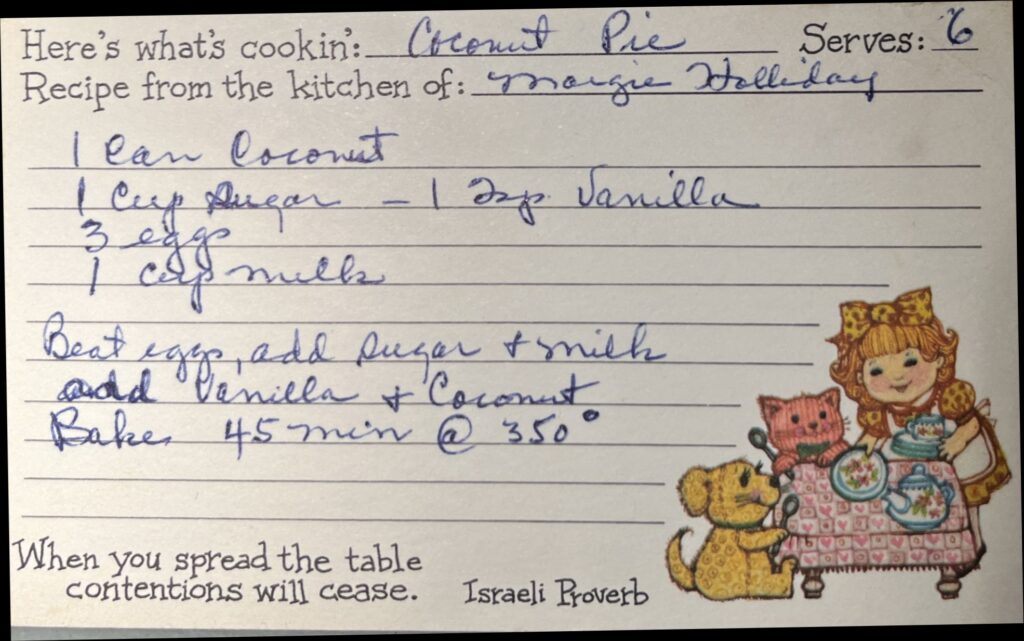 Here's what's cookin': Coconut Pie Serves: 6
Recipe from the kitchen of: Margie Holliday
1 Can Coconut
1 Cup Sugar - 1 tsp. Vanilla
3 eggs
1 cup milk
Beat eggs, add sugar + milk
add Vanilla + Coconut
Bake 45 min @ 350°
When you spread the table
contentions will cease. Israeli Proverb